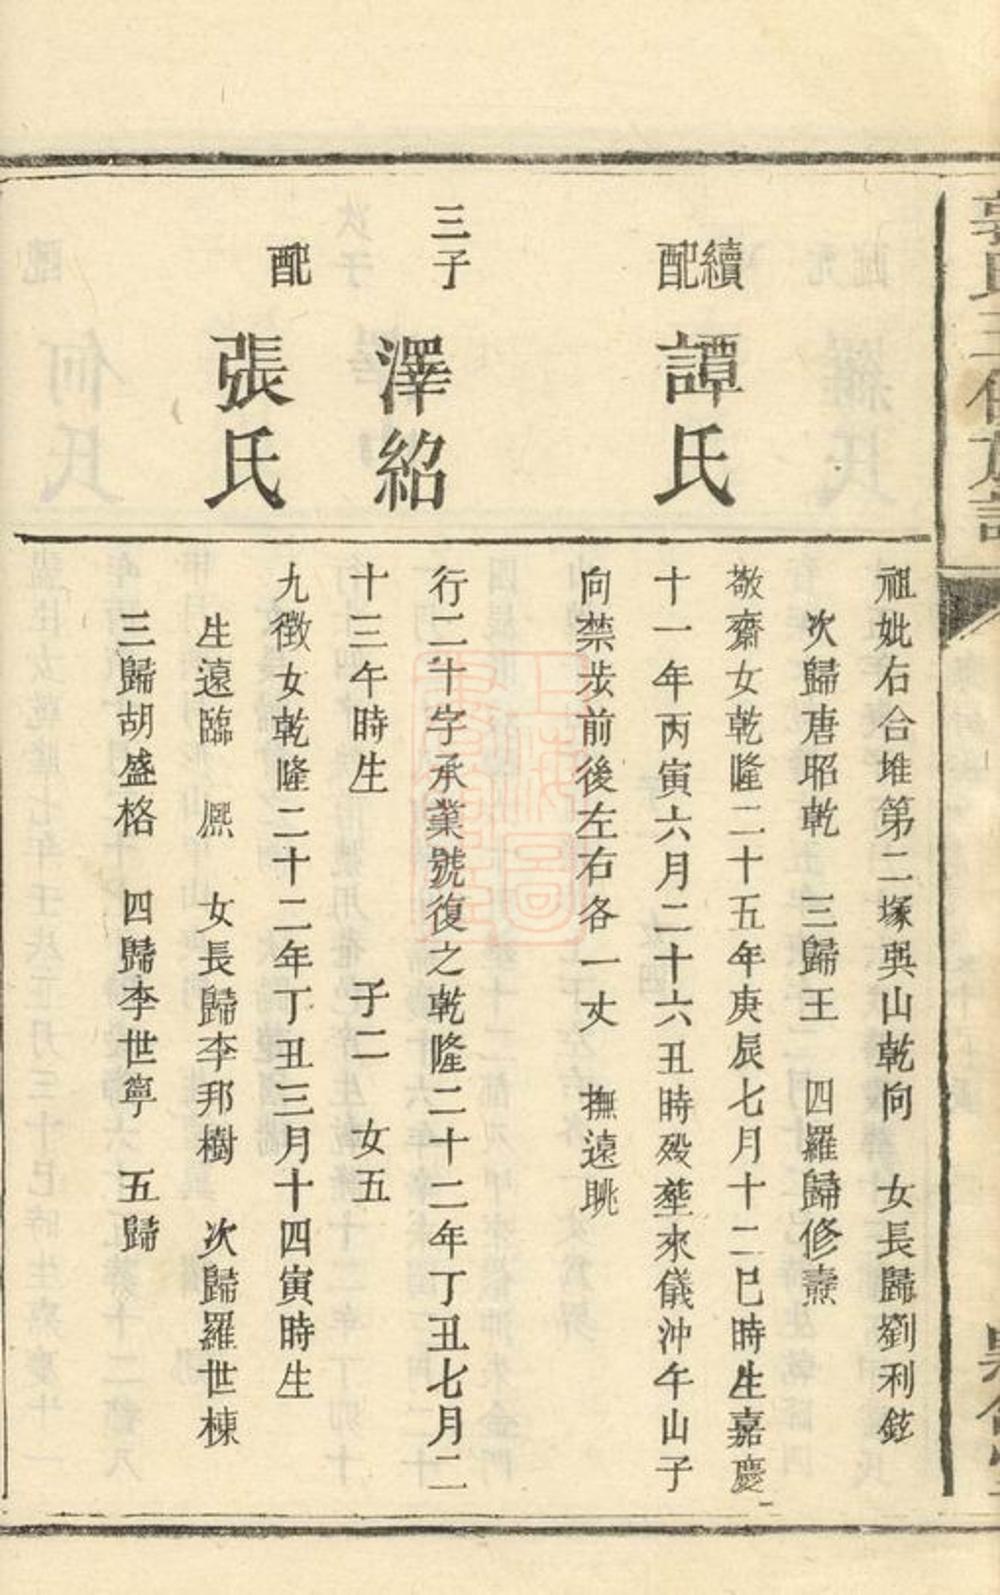 郭氏三修族譜
祖妣右合堆第二塚巽山乾向　女長歸劉利鉉
次歸唐昭乾　三歸王　四羅歸修燾
續配　譚氏
敬齋女乾隆二十五年庚辰七月十二巳時生嘉慶
十一年丙寅六月二十六丑時殁塟來儀沖午山子
向禁步前後左右各一丈　撫遠眺
三子　澤紹
行二十字承業號復之乾隆二十二年丁丑七月二
十三午時生　子二　女五
配　張氏
九徵女乾隆二十二年丁丑三月十四寅時生
生遠臨　熙　女長歸李邦樹　次歸羅世棟
三歸胡盛格　四歸李世寧　五歸